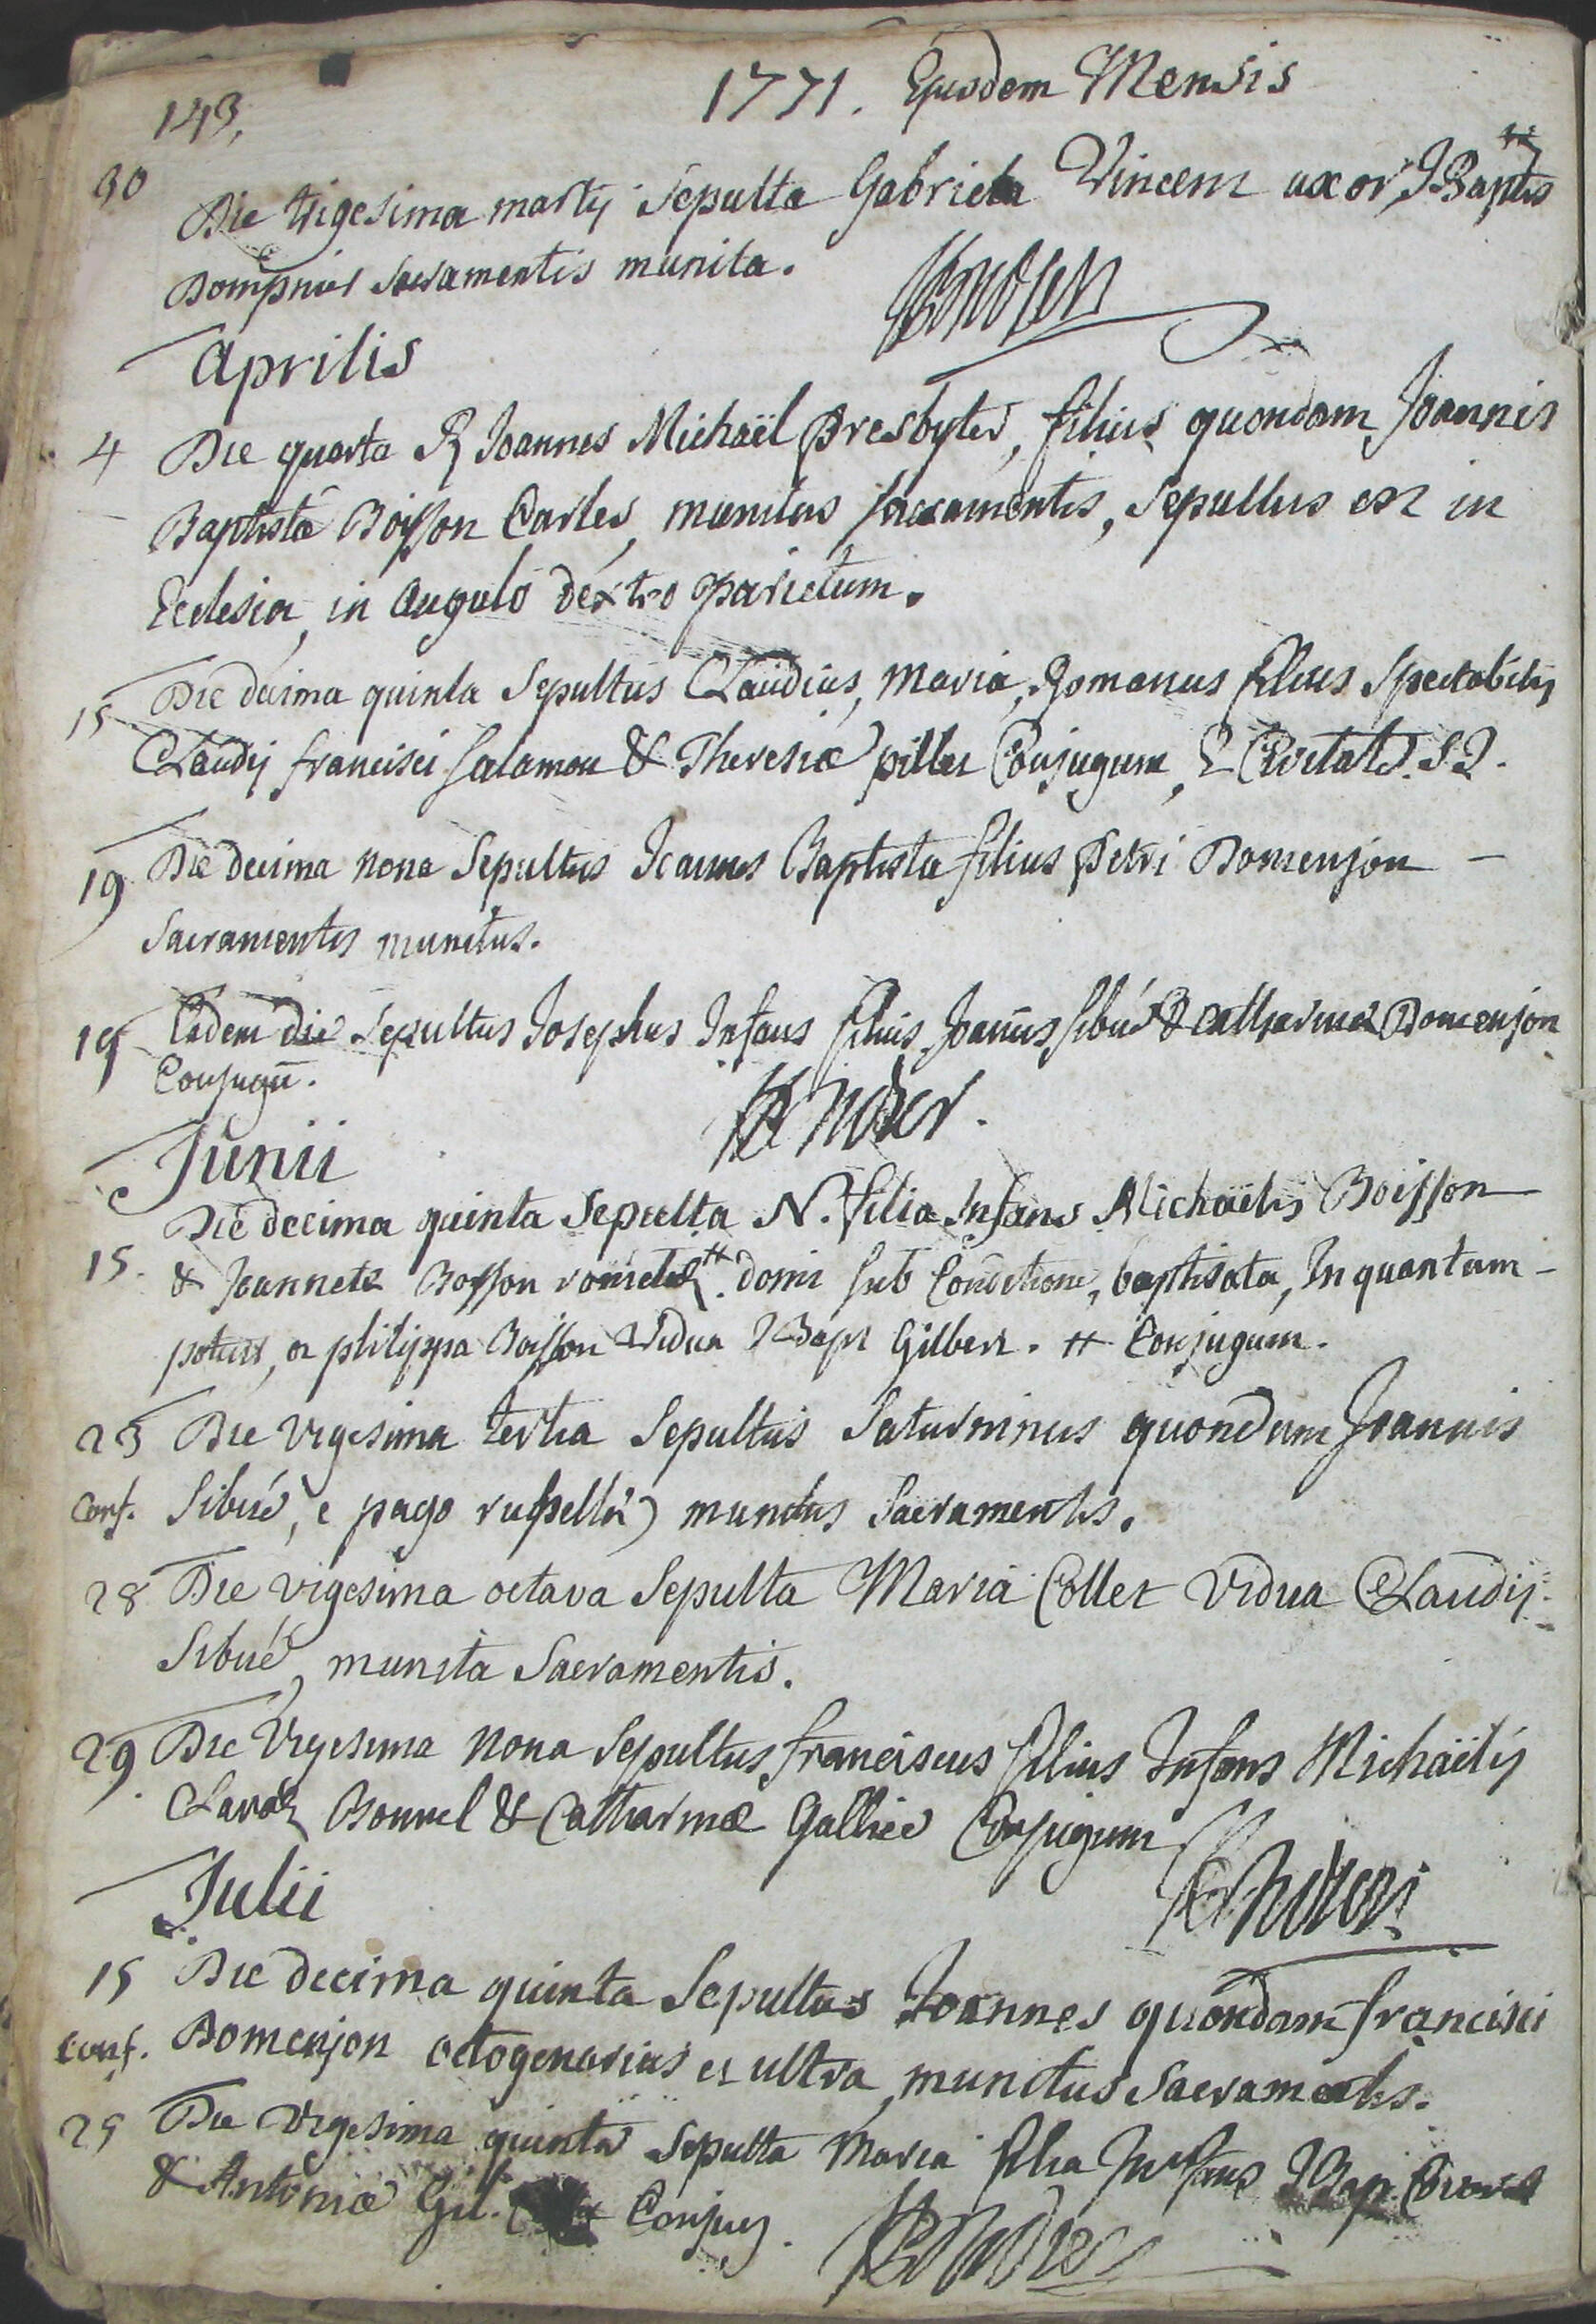 1771. Ejusdem Mensis
143.
30 Die trigesima martij Sepulta Gabriela Vincem uxor J Baptis
Dompnier Sacramentis munita.
Aprilis
4 Die quarta R Joannes Michaël Presbyter, filius quondam Joannis
Baptistæ Boisson Carles, munitus sacramentis, Sepultus est in
Ecclesia, in Angulo dextro parietum.
15 Die decima quinta Sepultus Claudius, Maria, Romanus filius Spectabilis
Claudij francisci Salamon & Theresiæ pillet Conjugum, E Civitat. S. J.
19 Die decima nona Sepultus Joannes Baptista filius Petri Domenjon –
Sacramentis munitus.
19 Eadem die Sepultus Josephus Infans filius Joannis Sibué & Catharinæ Domenjon
Conjugū.
Junii
15. Die decima quinta Sepulta N. filia Infans Michaëlis Boisson
& Jeannetæ Boisson # domi sub Conditione, baptisata, In quantum –
potuit, a philippa Boisson Vidua J Bapt Gilbert. # Conjugum.
23 Die vigesima tertia Sepultus Saturninus quondam Joannis
Conf. Sibué, e pago munitus Sacramentis.
28 Die vigesima octava Sepulta Maria Collet Vidua Claudij
Sibué, munita Sacramentis.
29. Die Vigesima nona Sepultus franciscus filius Infans Michaëlis
Bonnel & Catharinæ Conjugum
Julii
15 Die decima quinta Sepultus Joannes quondam francisci
conf. Domenjon octogenarius et ultra, munitus Sacramentis.
25 Die vigesima quinta Sepulta Maria filia Infans J Bap.
& Antoniæ Gil. Conjug.